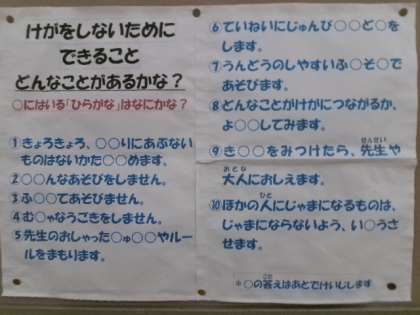 けがをしないために
できること
どんなことがあるかな？
○にはいる「ひらがな」はなにかな？
①きょろきょろ、○○りにあぶない
ものはないかた○○めます。
②○○んなあそびをしません。
③ふ○○てあそびません。
④む○ゃなうごきをしません。
⑤先生のおしゃった○ゅ○○やルー
ルをまもります。
⑥ていねいにじゅんび○○ど○を
します。
⑦うんどうのしやすいふ○そ○で
あそびます。
⑧どんなことがけがにつながるか、
よ○○してみます。
⑨き○○をみつけたら、先生や
大人におしえます。
⑩ほかの人にじゃまになるものは、
じゃまにならないよう、い○うさ
せます。
＊○の答えはあとでけいじします